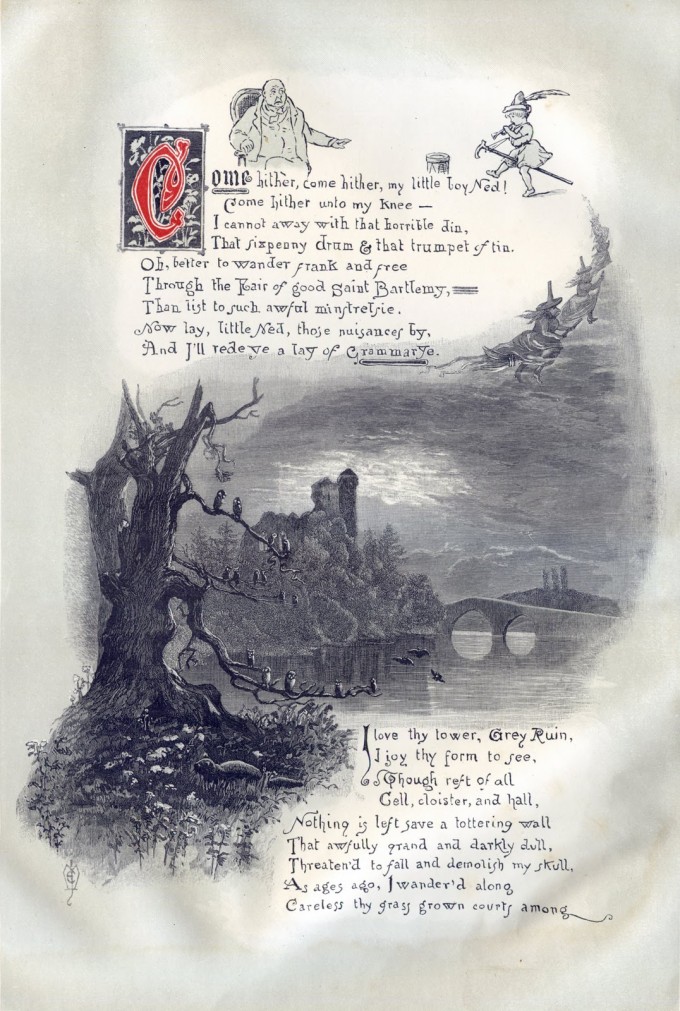 Come hither, come hither, my little boy Ned!
Come hither unto my knee —
I cannot away with that horrible din,
That sixpenny drum & that trumpet of tin.
Oh, better to wander frank and free
Through the Fair of good Saint Bartlemy,
Than list to such awful minstrelsie.
Now lay, little Ned, those nuisances by,
And I'll rede ye a lay of Grammarye.
I love thy tower, Grey Ruin,
I joy thy form to see,
Though reft of all
Cell, cloister, and hall,
Nothing is left save a tottering wall
That awfully grand and darkly dull,
Threaten'd to fall and demolish my skull,
As ages ago, I wander'd along
Careless thy grass grown courts among